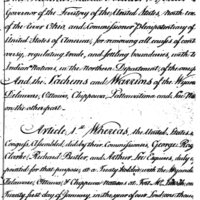 Governor of the Territory of the United States, north west
of the river Ohio, and Commissioner Plenipotentiary of
United States of America, for removing all causes of controversy,
regulating trade, and settling boundaries, with the
Indian Nations, in the Northern Department, of the one
And the Sachems and Warriors of the
Delaware, Ottawa, Chippewa, Pattawatima and Sac
on the other part.
Article 1st Whereas, the United States
Congress Assembled, did by their Commissioners, George Rog
Clarke, Richard Butler, and Arthur Lee Esquires, duly
pointed for that purpose, at a Treaty holden with the
Delaware, Ottawa, & Chippewa Nations at Fort
Twenty first day of January, in the year of our Lord one thou